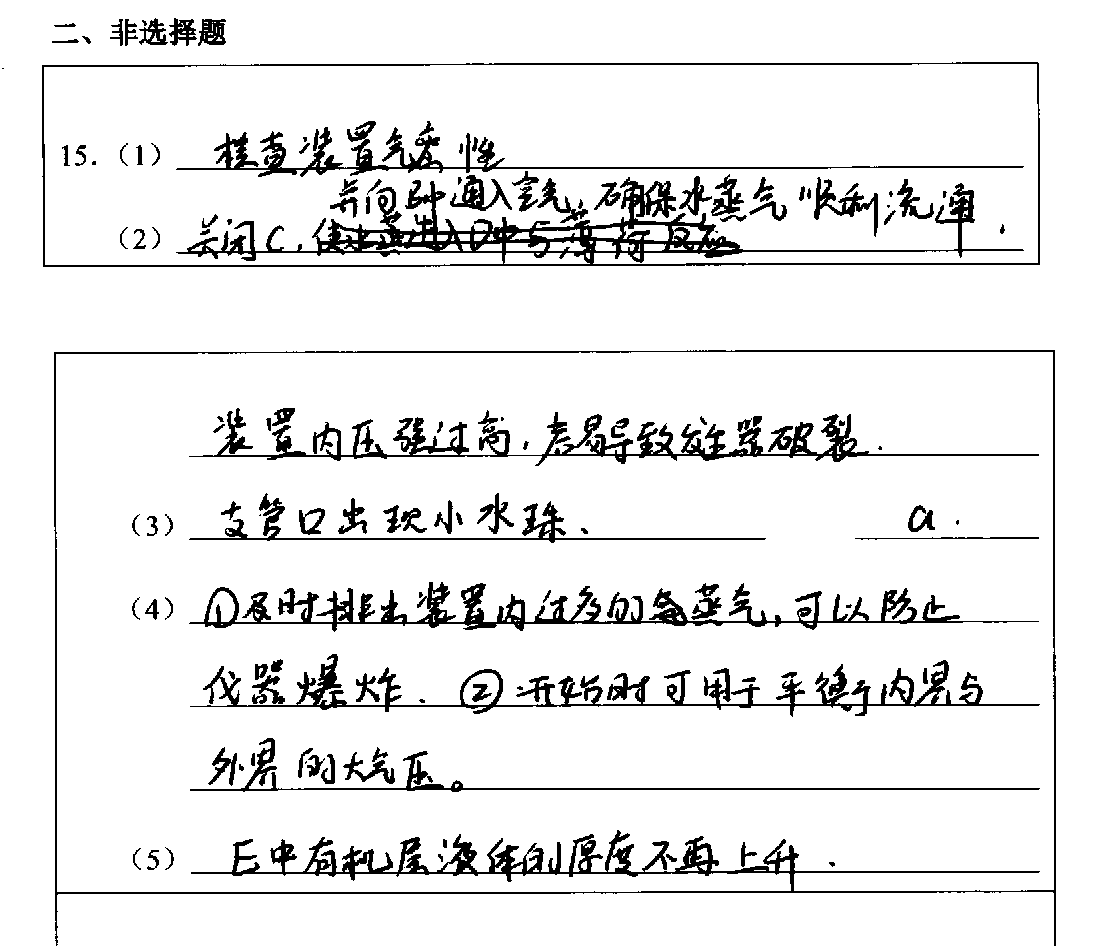 二、非选择题
15.（1）检查装置气密性
并向D中通入空气，确保水蒸气顺利流通，
（2）关闭C，
装置内压强过高，容易导致发生器破裂.
（3）支管口出现小水珠、 a.
（4）①及时排出装置内过多的蒸气，可以防止
仪器爆炸. ②开始时可用于平衡于内界与
外界的大气压。
（5）E中有机层液体的厚度不再上升.